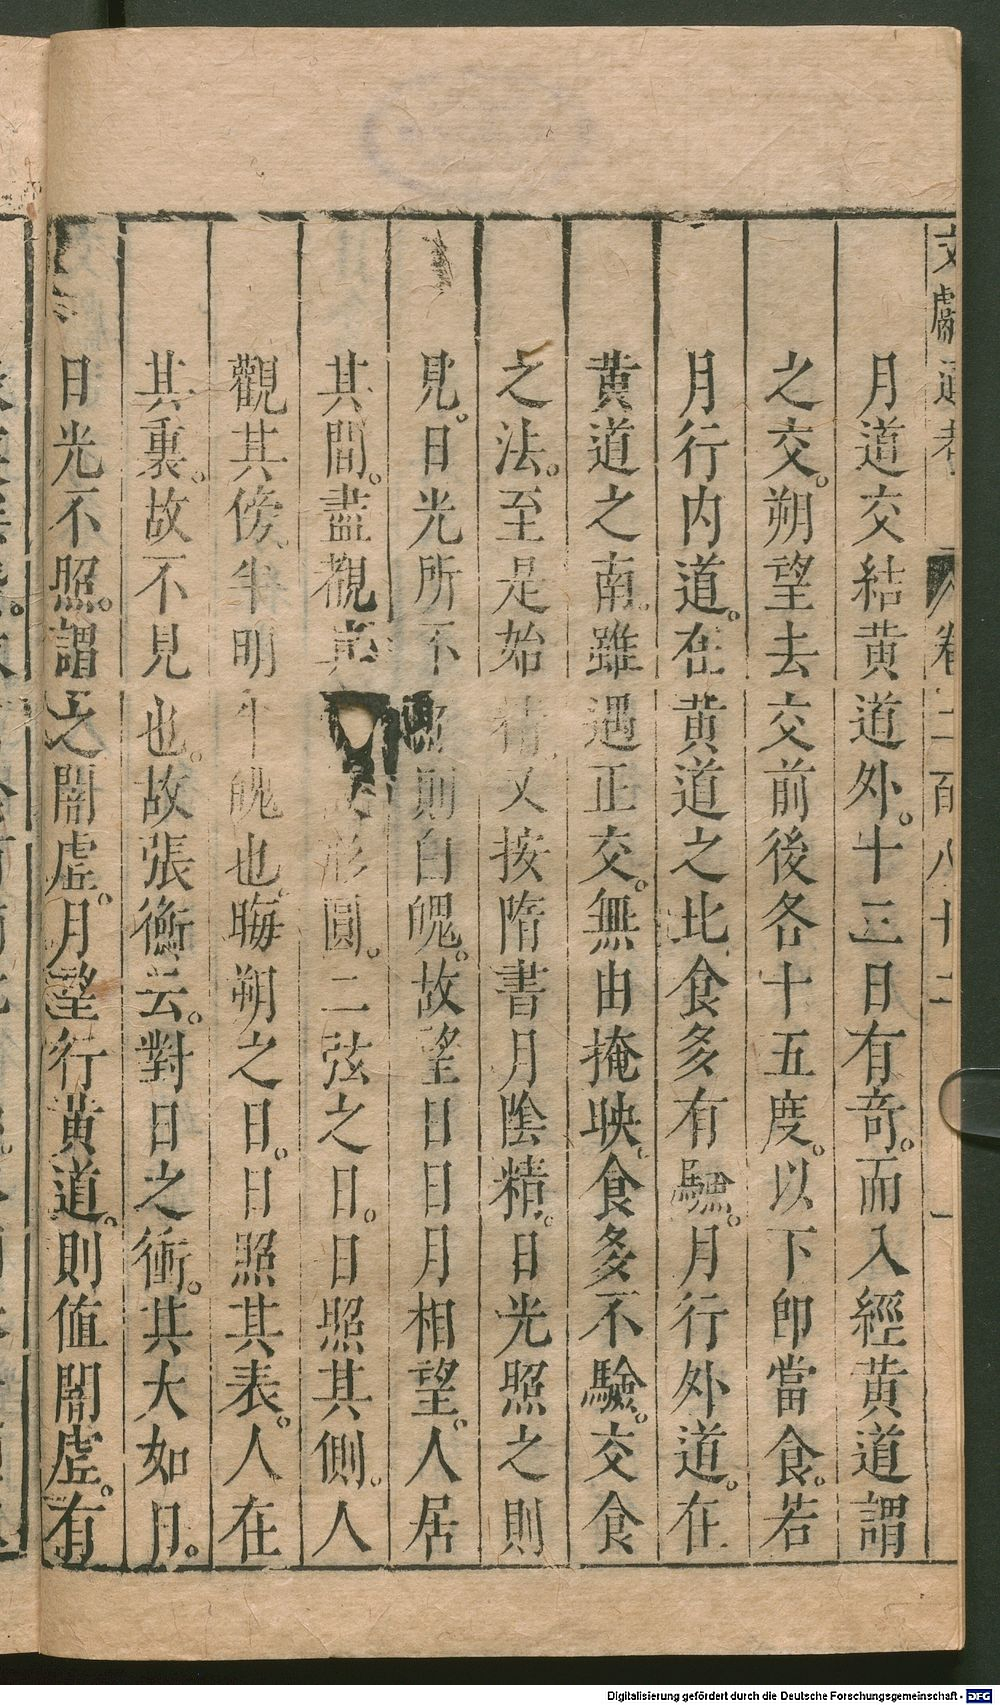 文獻通考 卷二百八十二 一
月道交結黄道外。十三日有奇。而入經黄道謂
之交。朔望去交前後各十五度。以下即當食。若
月行内道。在黄道之北食多有驗。月行外道。在
黄道之南。雖遇正交。無由掩映。食多不驗。交食
之法。至是始精。又按隋書月陰精。日光照之則
見。日光所不照則白魄。故望日日月相望。人居
其間。盡觀其 形圓。二弦之日。日照其側。人
觀其傍。半明半魄也。晦朔之日。日照其表。人在
其裏。故不見也。故張衡云。對日之衝。其大如月。
日光不照。謂之闇虛。月望行黄道。則值闇虛。有
Digitalisierung gefördert durch die Deutsche Forschungsgemeinschaft - DFG